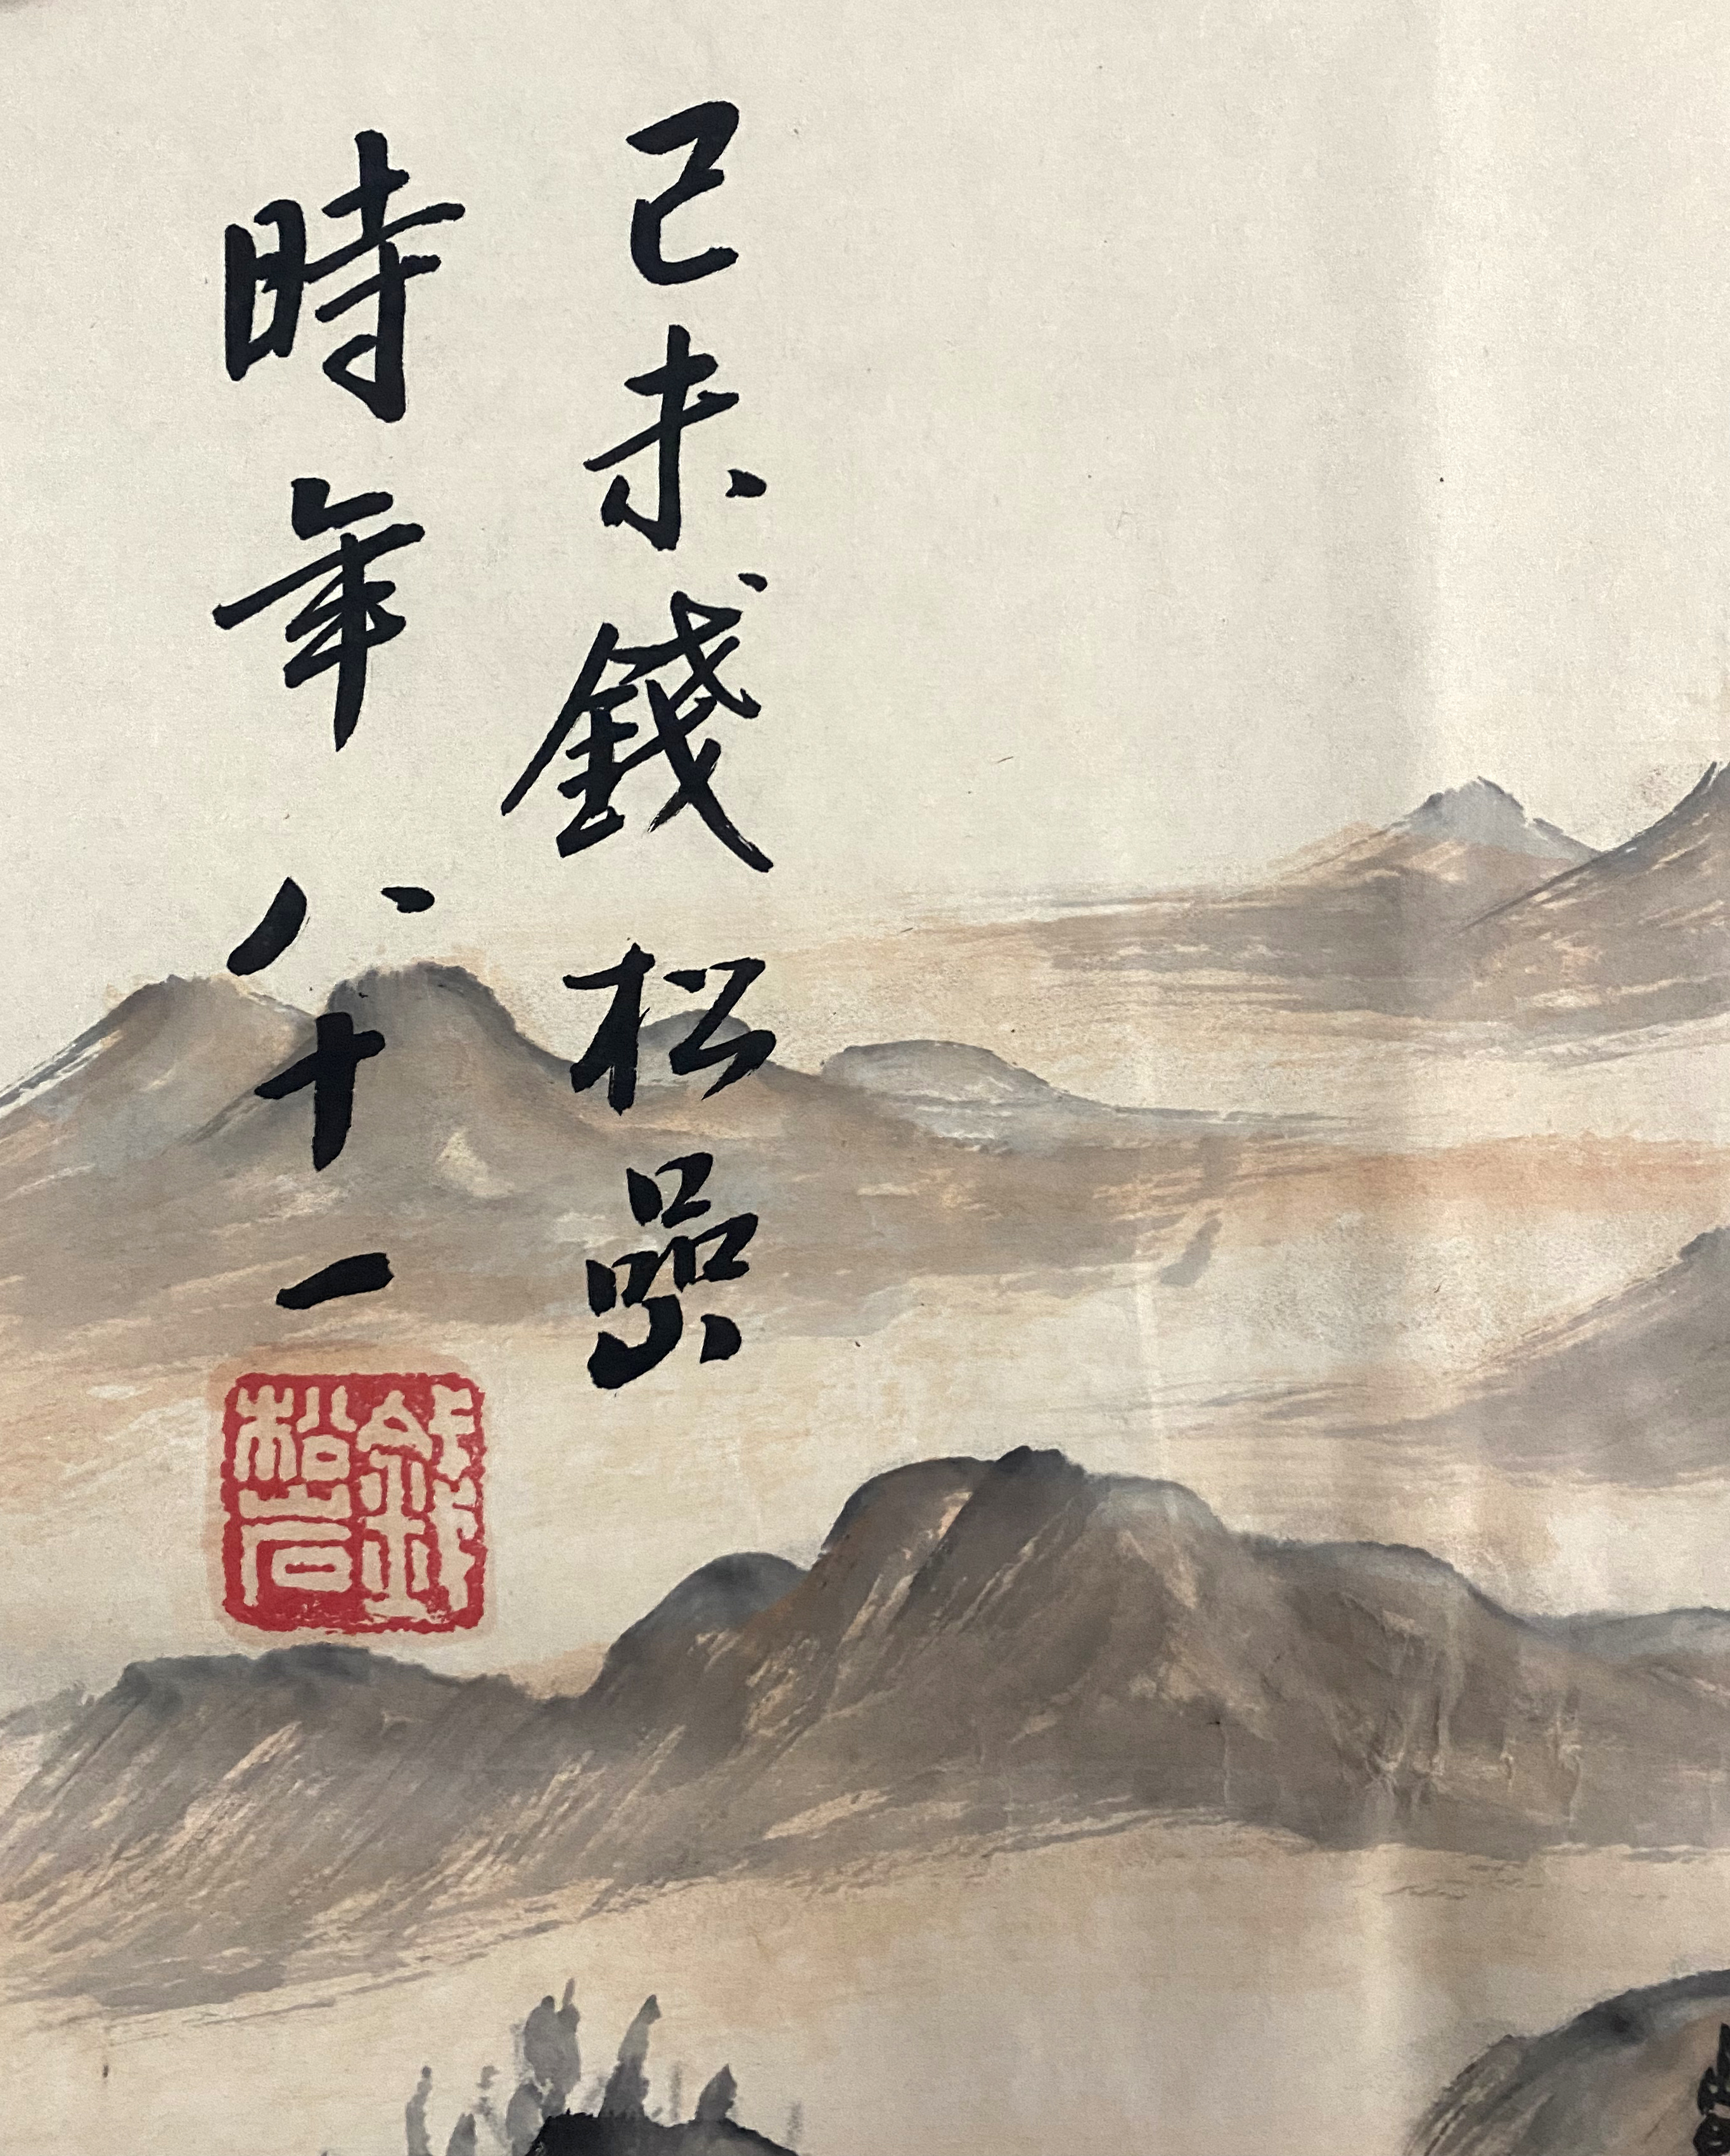 己未錢松嵒
時年八十一
錢松岩